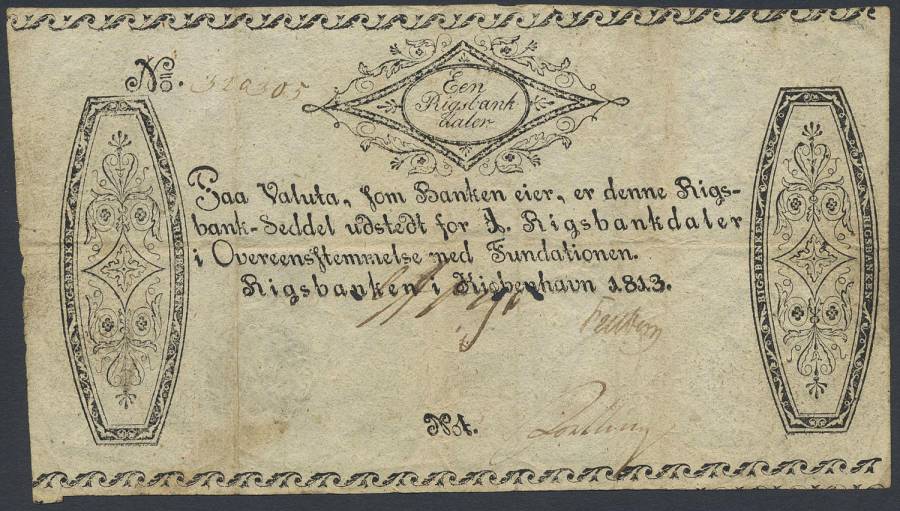 No. 320305
Een
Rigsbank
daler
Paa Valuta, som Banken eier, er denne Rigs-
bank-Seddel udstedt for 1. Rigsbankdaler
i Overeensstemmelse med Fundationen.
Rigsbanken i Kiøbenhavn 1813.
No 1.
RIGSBANKEN
RIGSBANKEN
RIGSBANKEN
RIGSBANKEN